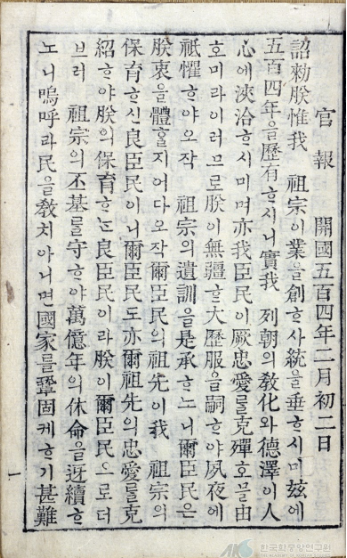 官報 開國五百四年二月初二日
詔勅朕惟我 祖宗이業을創ᄒᆞ사統을垂ᄒᆞ시미玆에
五百四年을歷有ᄒᆞ시니實我 列朝의敎化와德澤이人
心에浹洽ᄒᆞ시미며亦我臣民이厥忠愛를克殫호믈由
호미라이러므로朕이無疆ᄒᆞᆫ大歷服을嗣ᄒᆞ야夙夜에
祗懼ᄒᆞ야오작 祖宗의遺訓을是承ᄒᆞ노니爾臣民은
朕衷을體ᄒᆞᆯ지어다오작爾臣民의祖先이我 祖宗의
保育ᄒᆞ신良臣民이니爾臣民도亦爾祖先의忠愛를克
紹ᄒᆞ야朕의保育ᄒᆞᄂᆞᆫ良臣民이라朕이爾臣民으로더
브러 祖宗의丕基를守ᄒᆞ야萬億年의休命을迓續ᄒᆞ
노니嗚呼라民을敎치아니면國家를鞏固케ᄒᆞ기甚難
一
한국학중앙연구원